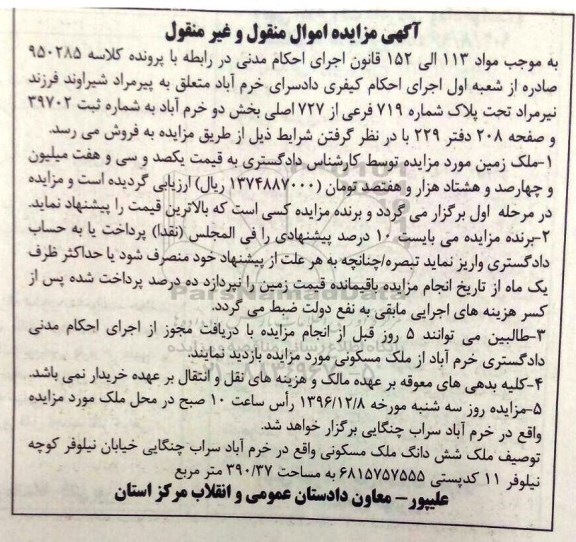 آگهی مزایده اموال منقول و غیر منقول
به موجب مواد ۱۱۳ الی ۱۵۲ قانون اجرای احکام مدنی در رابطه با پرونده کلاسه ۹۵۰۲۸۵
صادره از شعبه اول اجرای احکام کیفری دادسرای خرم آباد متعلق به پیرمراد شیراوند فرزند
نیرمراد تحت پلاک شماره ۷۱۹ فرعی از ۷۲۷ اصلی بخش دو خرم آباد به شماره ثبت ۳۹۷۰۲
و صفحه ۲۰۸ دفتر ۲۲۹ با در نظر گرفتن شرایط ذیل از طریق مزایده به فروش می رسد.
۱-ملک زمین مورد مزایده توسط کارشناس دادگستری به قیمت یکصد و سی و هفت میلیون
و چهارصد و هشتاد هزار و هفتصد تومان (۱۳۷۴۸۸۷۰۰۰ ریال) ارزیابی گردیده است و مزایده
در مرحله اول برگزار می گردد و برنده مزایده کسی است که بالاترین قیمت را پیشنهاد نماید.
۲-برنده مزایده می بایست ۱۰ درصد پیشنهادی را فی المجلس (نقدا) پرداخت یا به حساب
دادگستری واریز نماید تبصره/چنانچه به هر علت از پیشنهاد خود منصرف شود یا حداکثر ظرف
یک ماه از تاریخ انجام مزایده باقیمانده قیمت زمین را نپردازد ده درصد پرداخت شده پس از
کسر هزینه های اجرایی مابقی به نفع دولت ضبط می گردد.
۳-طالبین می توانند ۵ روز قبل از انجام مزایده با دریافت مجوز از اجرای احکام مدنی
دادگستری خرم آباد از ملک مسکونی مورد مزایده بازدید نمایند.
۴-کلیه بدهی های معوقه بر عهده مالک و هزینه های نقل و انتقال بر عهده خریدار نمی باشد.
۵-مزایده روز سه شنبه مورخه ۱۳۹۶/۱۲/۸ رأس ساعت ۱۰ صبح در محل ملک مورد مزایده
واقع در خرم آباد سراب چنگایی برگزار خواهد شد.
توصیف ملک شش دانگ ملک مسکونی واقع در خرم آباد سراب چنگایی خیابان نیلوفر کوچه
نیلوفر ۱۱ کدپستی ۶۸۱۵۷۵۷۵۵۵ به مساحت ۳۹۰/۳۷ متر مربع
علیپور- معاون دادستان عمومی و انقلاب مرکز استان
ParsNamadData